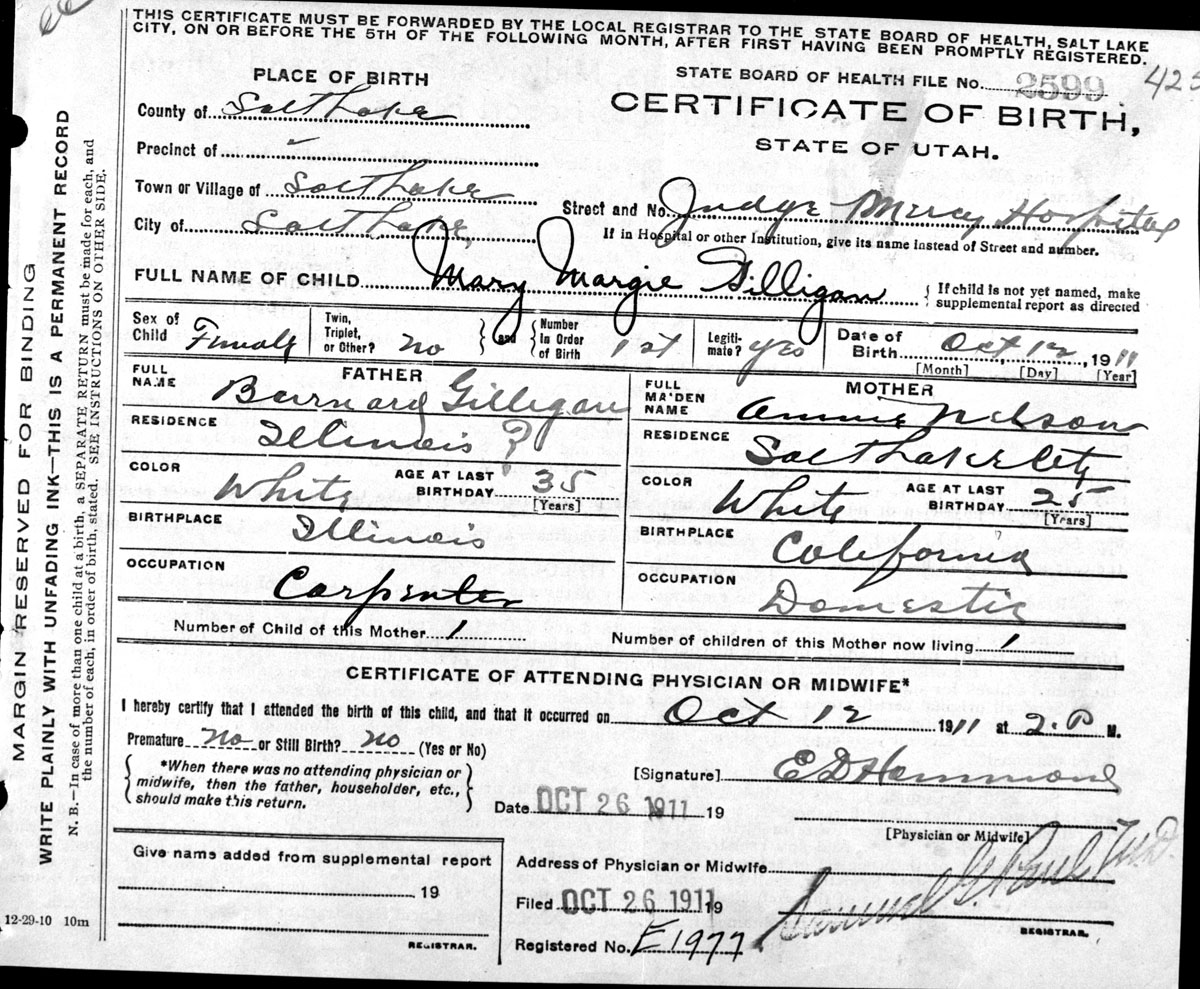 THIS CERTIFICATE MUST BE FORWARDED BY THE LOCAL REGISTRAR TO THE STATE BOARD OF HEALTH, SALT LAKE
CITY, ON OR BEFORE THE 5TH OF THE FOLLOWING MONTH, AFTER FIRST HAVING BEEN PROMPTLY REGISTERED.
PLACE OF BIRTH
STATE BOARD OF HEALTH FILE No. 2599
425
County of Salt Lake
CERTIFICATE OF BIRTH,
STATE OF UTAH.
Precinct of
Town or Village of Salt Lake
Street and No. Judge Mercy Hospital
City of Salt Lake,
If in Hospital or other Institution, give its name instead of Street and number.
FULL NAME OF CHILD Mary Margie Gilligan
{ If child is not yet named, make
supplemental report as directed
Sex of Child Female
Twin, Triplet, or Other? no
} and {
Number In Order of Birth 1st
Legiti-mate? yes
Date of Birth Oct 12, 1911
[Month] [Day] [Year]
FATHER
FULL NAME Barnard Gilligan
RESIDENCE Illinois ?
COLOR White
AGE AT LAST BIRTHDAY 35
[Years]
BIRTHPLACE Illinois
OCCUPATION Carpenter
MOTHER
FULL MAIDEN NAME Annie Nelson
RESIDENCE Salt Lake City
COLOR White
AGE AT LAST BIRTHDAY 25
[Years]
BIRTHPLACE California
OCCUPATION Domestic
Number of Child of this Mother 1
Number of children of this Mother now living 1
CERTIFICATE OF ATTENDING PHYSICIAN OR MIDWIFE*
I hereby certify that I attended the birth of this child, and that it occurred on Oct 12 1911 at 2. P M.
Premature no or Still Birth? no (Yes or No)
{ *When there was no attending physician or
midwife, then the father, householder, etc.,
should make this return. }
[Signature] E D Hammond
Date OCT 26 1911 19
[Physician or Midwife]
Give name added from supplemental report
19
REGISTRAR.
Address of Physician or Midwife
Filed OCT 26 1911 19
Samuel G. Paul M.D.
REGISTRAR.
Registered No. E1977
12-29-10 10m
MARGIN RESERVED FOR BINDING
WRITE PLAINLY WITH UNFADING INK—THIS IS A PERMANENT RECORD
N. B.—In case of more than one child at a birth, a SEPARATE RETURN must be made for each, and
the number of each, in order of birth, stated. SEE INSTRUCTIONS ON OTHER SIDE.